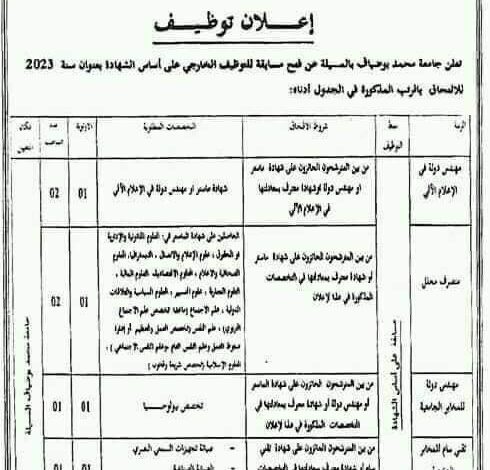 إعلان توظيف
تعلن جامعة محمد بوضياف بالمسيلة عن فتح مسابقة للتوظيف الخارجي على أساس الشهادة بعنوان سنة 2023
للالتحاق بالرتب المذكورة في الجدول أدناه:
الرتبة
نمط
التوظيف
شروط الالتحاق
التخصصات المطلوبة
الأولوية
عدد
المناصب
مكان
التعيين
مهندس دولة في
الإعلام الآلي
من بين المترشحين الحائزين على شهادة ماستر
أو مهندس دولة أو شهادة معترف بمعادلتها
في الإعلام الآلي
شهادة ماستر أو مهندس دولة في الإعلام الآلي
01
02
متصرف محلل
من بين المترشحين الحائزين على شهادة ماستر
أو شهادة معترف بمعادلتها في التخصصات
المذكورة في هذا الإعلان
الحاصلين على شهادة الماستر في: العلوم القانونية والإدارية
أو الحقوق، علوم الإعلام والاتصال، الديمغرافيا، العلوم
الصحافة والإعلام، العلوم الاقتصادية، العلوم المالية،
العلوم التجارية، علوم التسيير، العلوم السياسية والعلاقات
الدولية، علم الاجتماع (ماعدا تخصص علم الاجتماع
التربوي)، علم النفس (تخصص العمل والتنظيم أو
العمل وعلم النفس الاجتماعي)،
العلوم الإسلامية (تخصص شريعة وقانون)
01
02
مسابقة على أساس الشهادة
جامعة محمد بوضياف المسيلة
مهندس دولة
للمخابر الجامعية
من بين المترشحين الحائزين على شهادة الماستر
أو مهندس دولة أو شهادة معترف بمعادلتها في
التخصصات المذكورة في هذا الإعلان
تخصص بيولوجيا
01
01
تقني سام للمخابر
من بين المترشحين الحائزين على شهادة تقني
سام أو شهادة معترف بمعادلتها في التخصصات
صيانة تجهيزات السمعي البصري
01
01